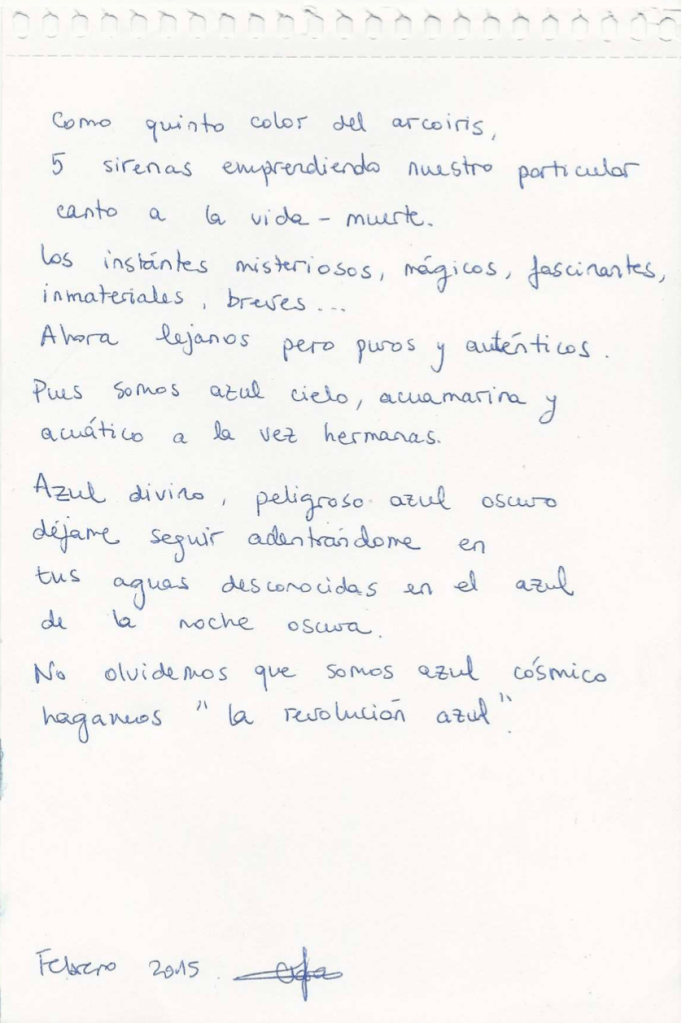 Como quinto color del arcoiris,
5 sirenas emprendiendo nuestro particular
canto a la vida - muerte.
Los instántes misteriosos, mágicos, fascinantes,
inmateriales, breves...
Ahora lejanos pero puros y auténticos.
Pues somos azul cielo, acuamarina y
acuático a la vez hermanas.
Azul divino, peligroso azul oscuro
déjame seguir adentrándome en
tus aguas desconocidas en el azul
de la noche oscura.
No olvidemos que somos azul cósmico
hagamos "la revolución azul".
Febrero 2015